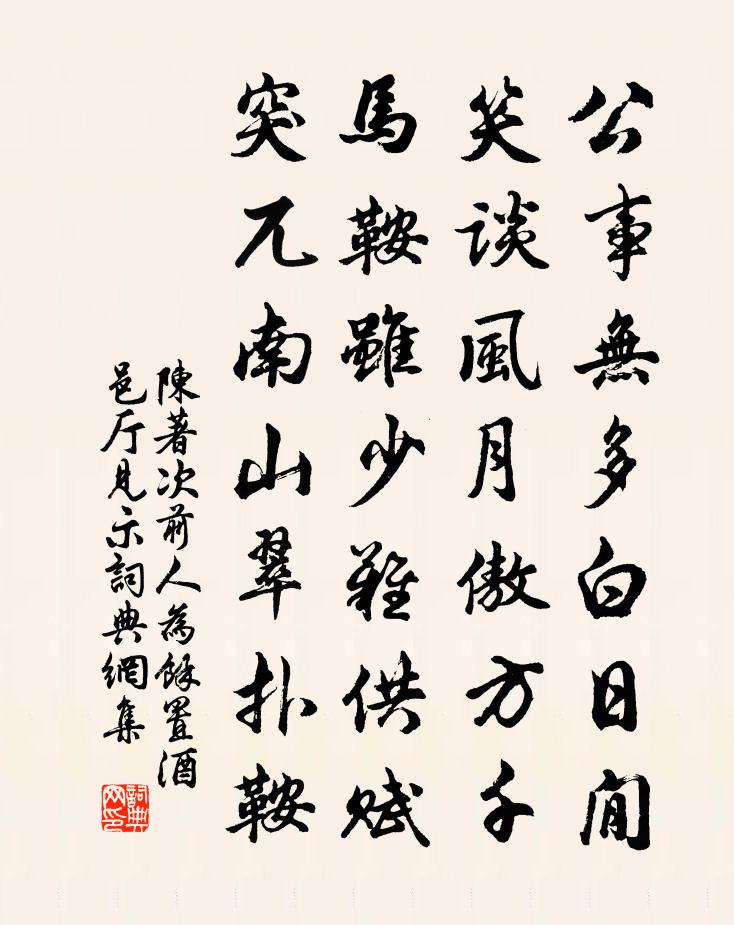 公事無多白日閒
笑談風月傲方千
馬鞍雖少難供賦
突兀南山翠扑鞍
陳著次前人為餘置酒
邑厅見示詞典網集
詞典网印